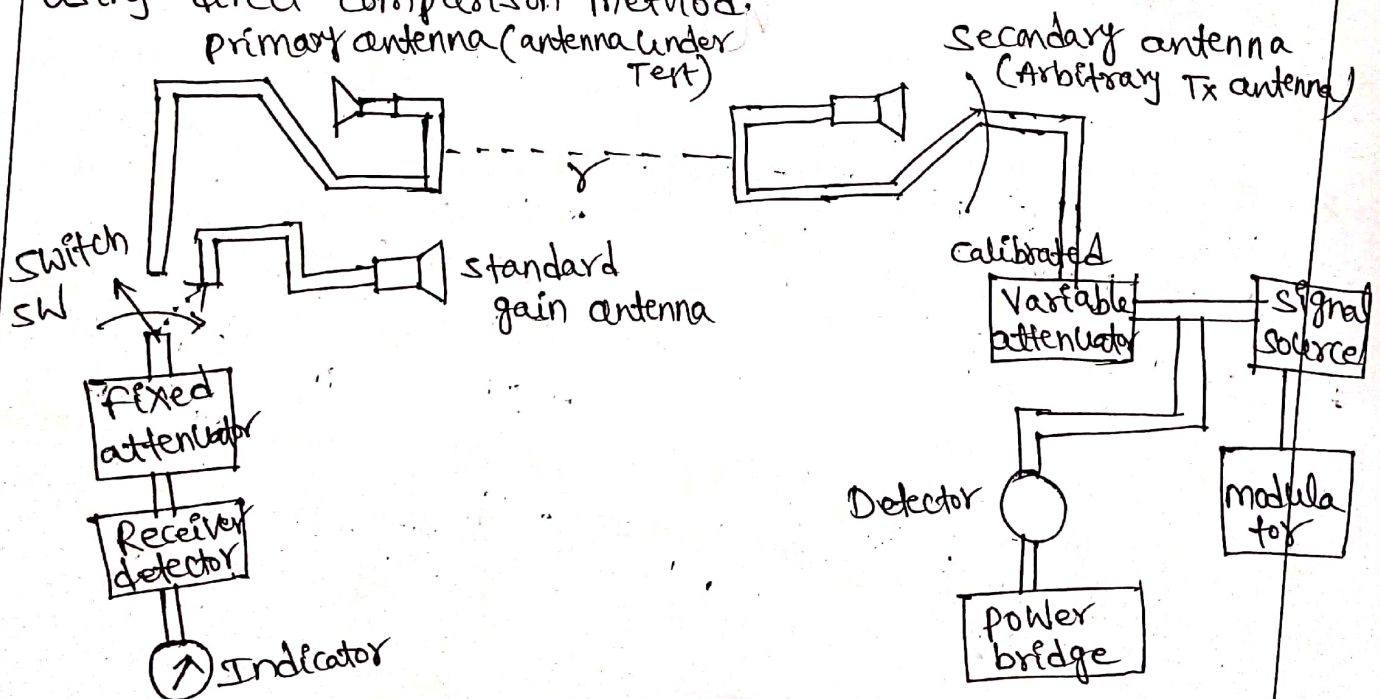 using direct comparison method.
primary antenna (antenna under
Test)
Secondary antenna
(Arbitrary Tx antenna)
r
Switch
SW
standard
gain antenna
Calibrated
Variable
attenuator
Signal
source
fixed
attenuator
Receiver
detector
Indicator
Detector
modula
tor
power
bridge